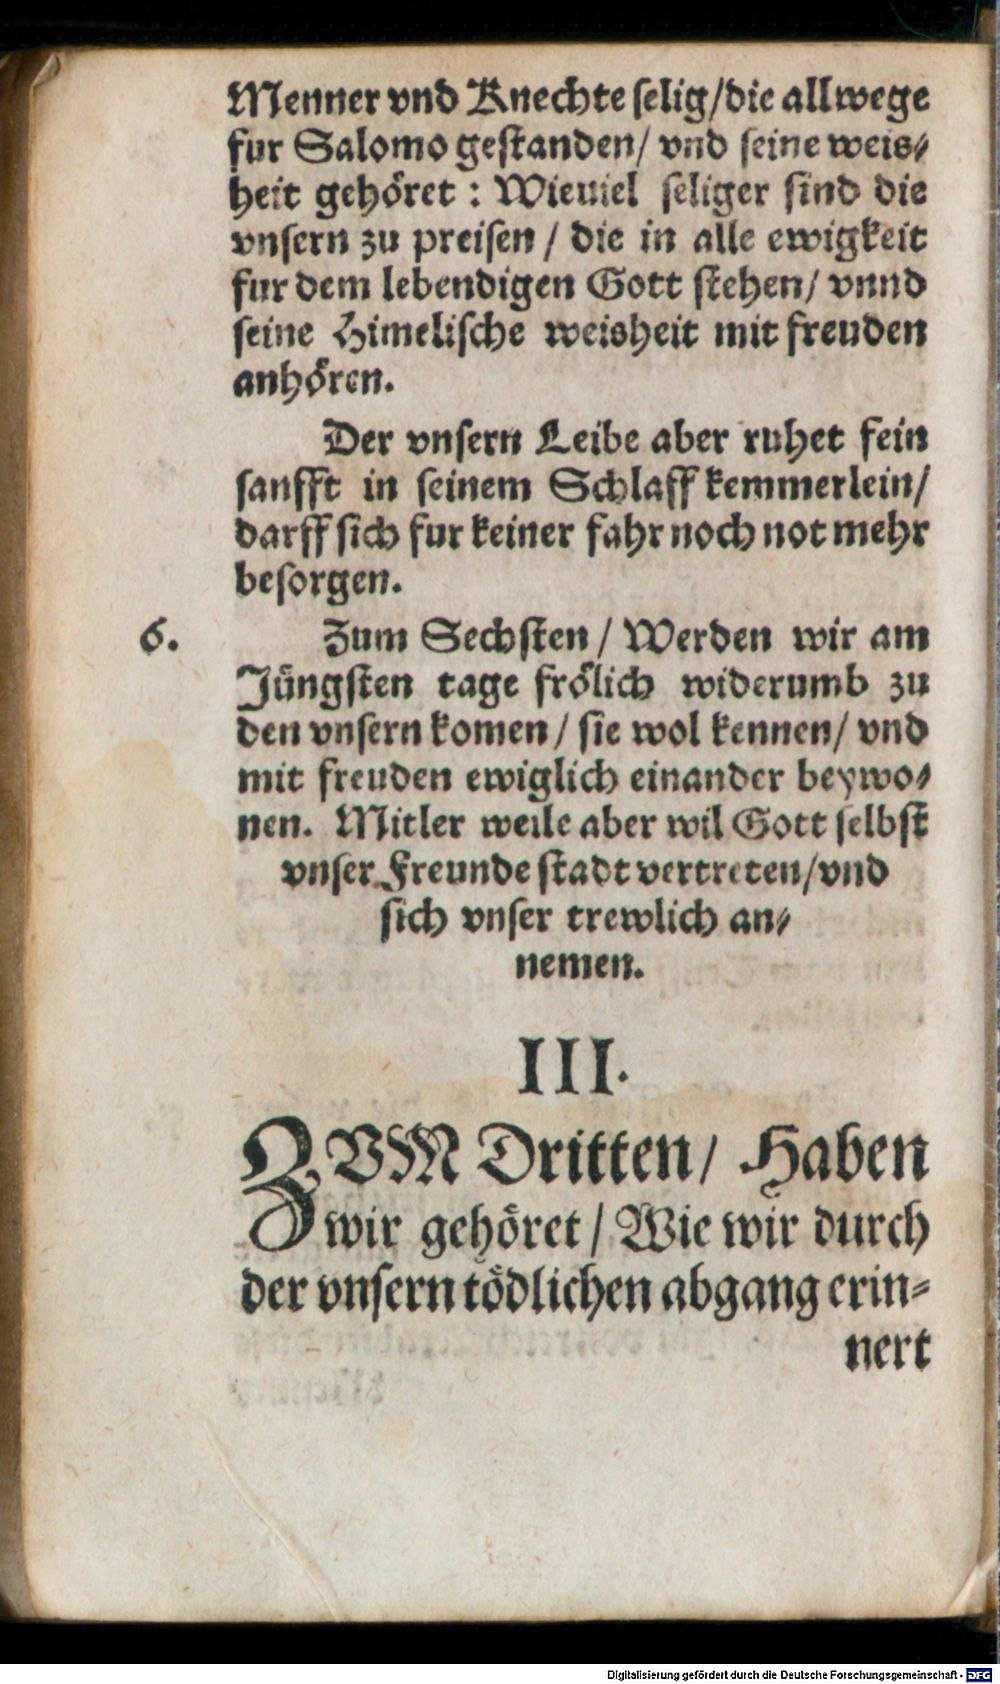 Menner vnd Knechte selig/die allwege
fur Salomo gestanden/ vnd seine weis-
heit gehöret : Wieuiel seliger sind die
vnsern zu preisen / die in alle ewigkeit
fur dem lebendigen Gott stehen/ vnnd
seine Himelische weisheit mit freuden
anhören.
Der vnsern Leibe aber ruhet fein
sanfft in seinem Schlaff kemmerlein/
darff sich fur keiner fahr noch not mehr
besorgen.
6. Zum Sechsten / Werden wir am
Jüngsten tage frölich widerumb zu
den vnsern komen / sie wol kennen/ vnd
mit freuden ewiglich einander beywo-
nen. Mitler weile aber wil Gott selbst
vnser Freunde stadt vertreten/vnd
sich vnser trewlich an-
nemen.
III.
ZVM Dritten/ Haben
wir gehöret / Wie wir durch
der vnsern tödlichen abgang erin-
nert
Digitalisierung gefördert durch die Deutsche Forschungsgemeinschaft - DFG